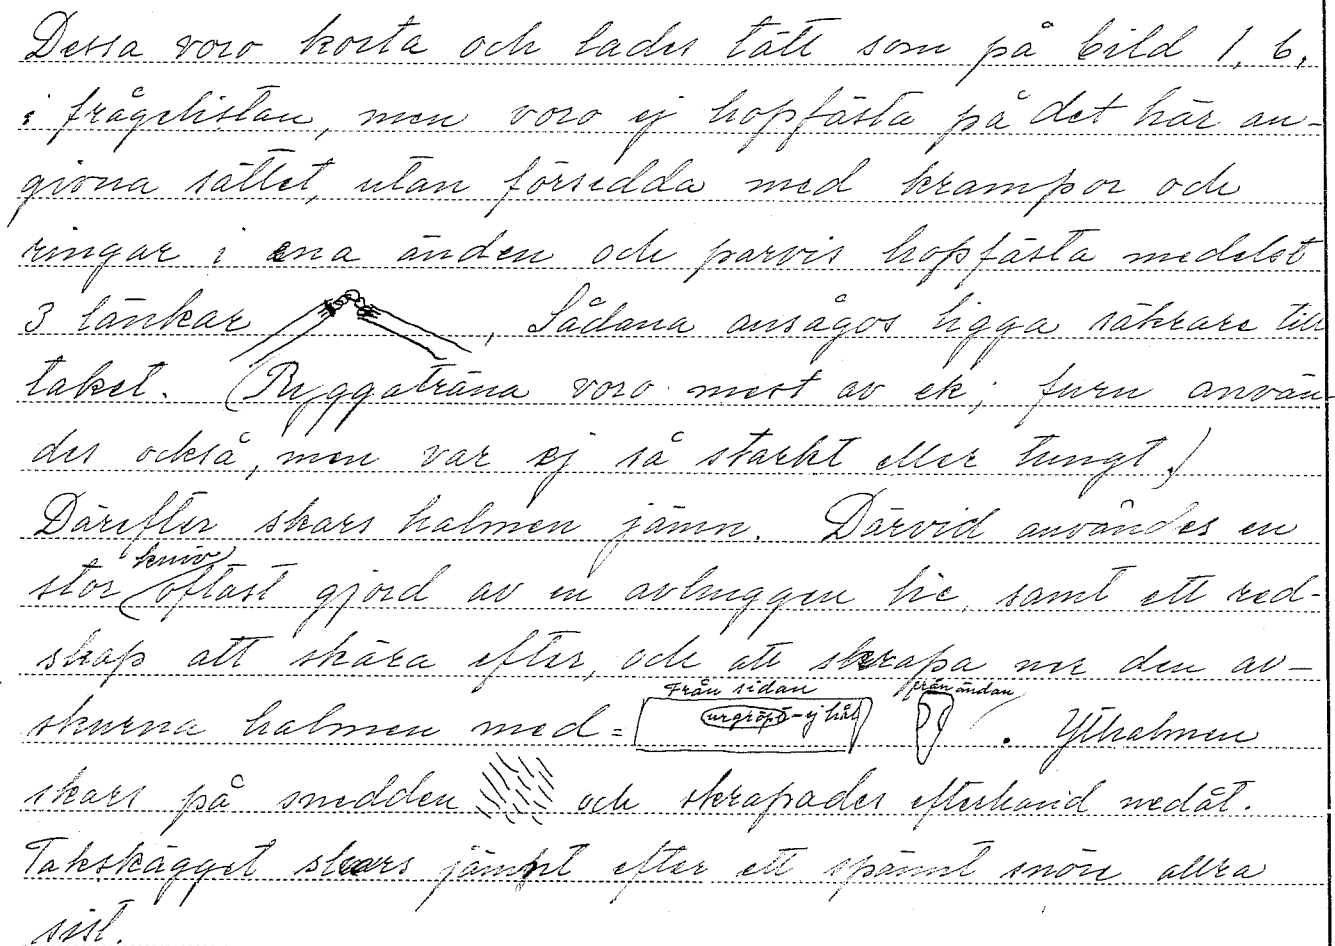 Dessa voro korta och lades tätt som på bild 1, b,
i frågelistan, men voro ej hopfästa på det här an-
givna sättet, utan försedda med krampor och
ringar i ena änden och parvis hopfästa medelst
3 länkar , Sådana ansågos ligga säkrare till
taket. (Ryggaträna voro mest av ek; furu använ-
des också, men var ej så starkt eller tungt.)
Därefter skars halmen jämn. Därvid användes en
stor kniv oftast gjord av en avhuggen lie, samt ett red-
skap att skära efter, och att skrapa ner den av-
Från sidan från ändan
skurna halmen med= urgröpt - ej hål . Ythalmen
skars på snedden och skrapades efterhand nedåt.
Takskägget skars jämnt efter ett spännt snöre allra
sist.